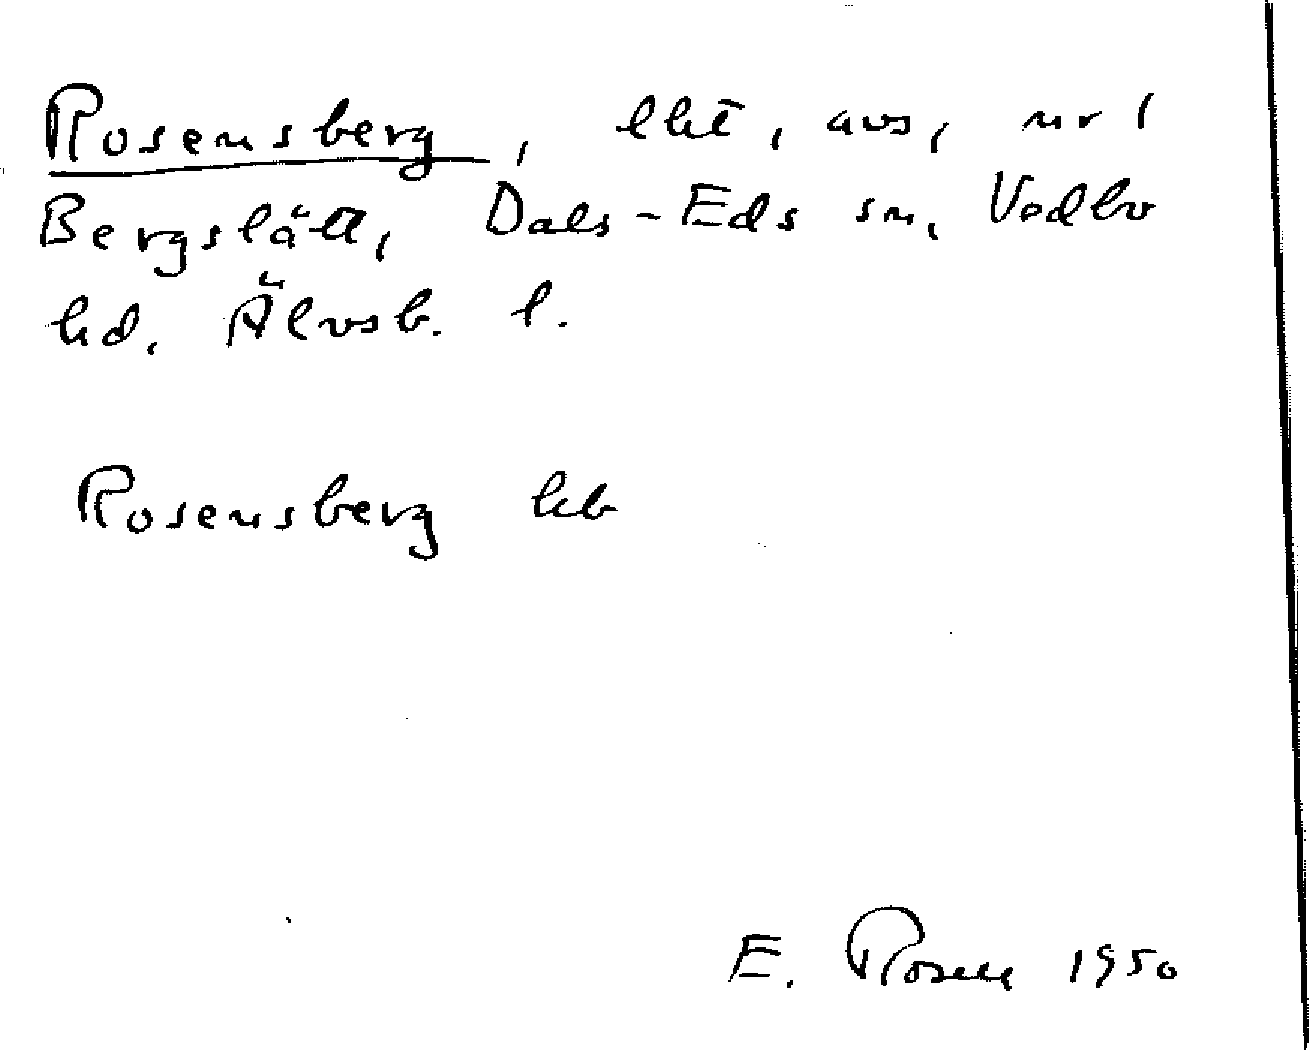 Rosensberg, lht, avs, nr 1
Bergslätt, Dals-Eds sn, Vedbo
hd. Älvsb. l.
Rosensberg kb
E. Rosell 1950